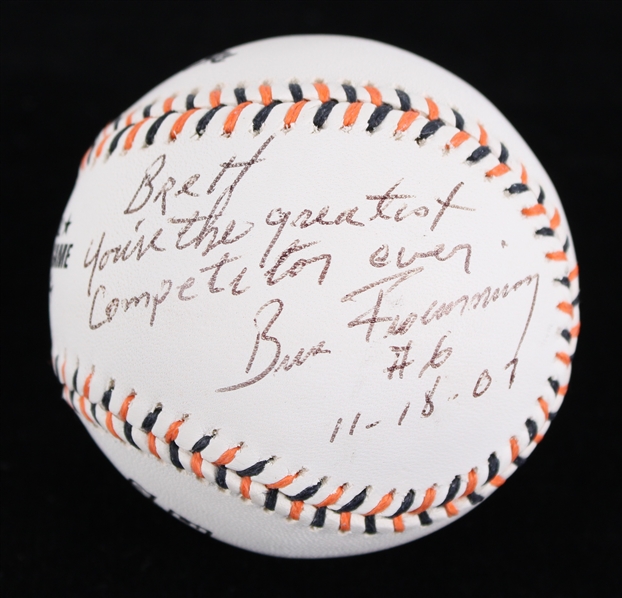 Brett
you're the greatest
Competitor ever.
Bruce Froemming
#6
11-18-07
AME